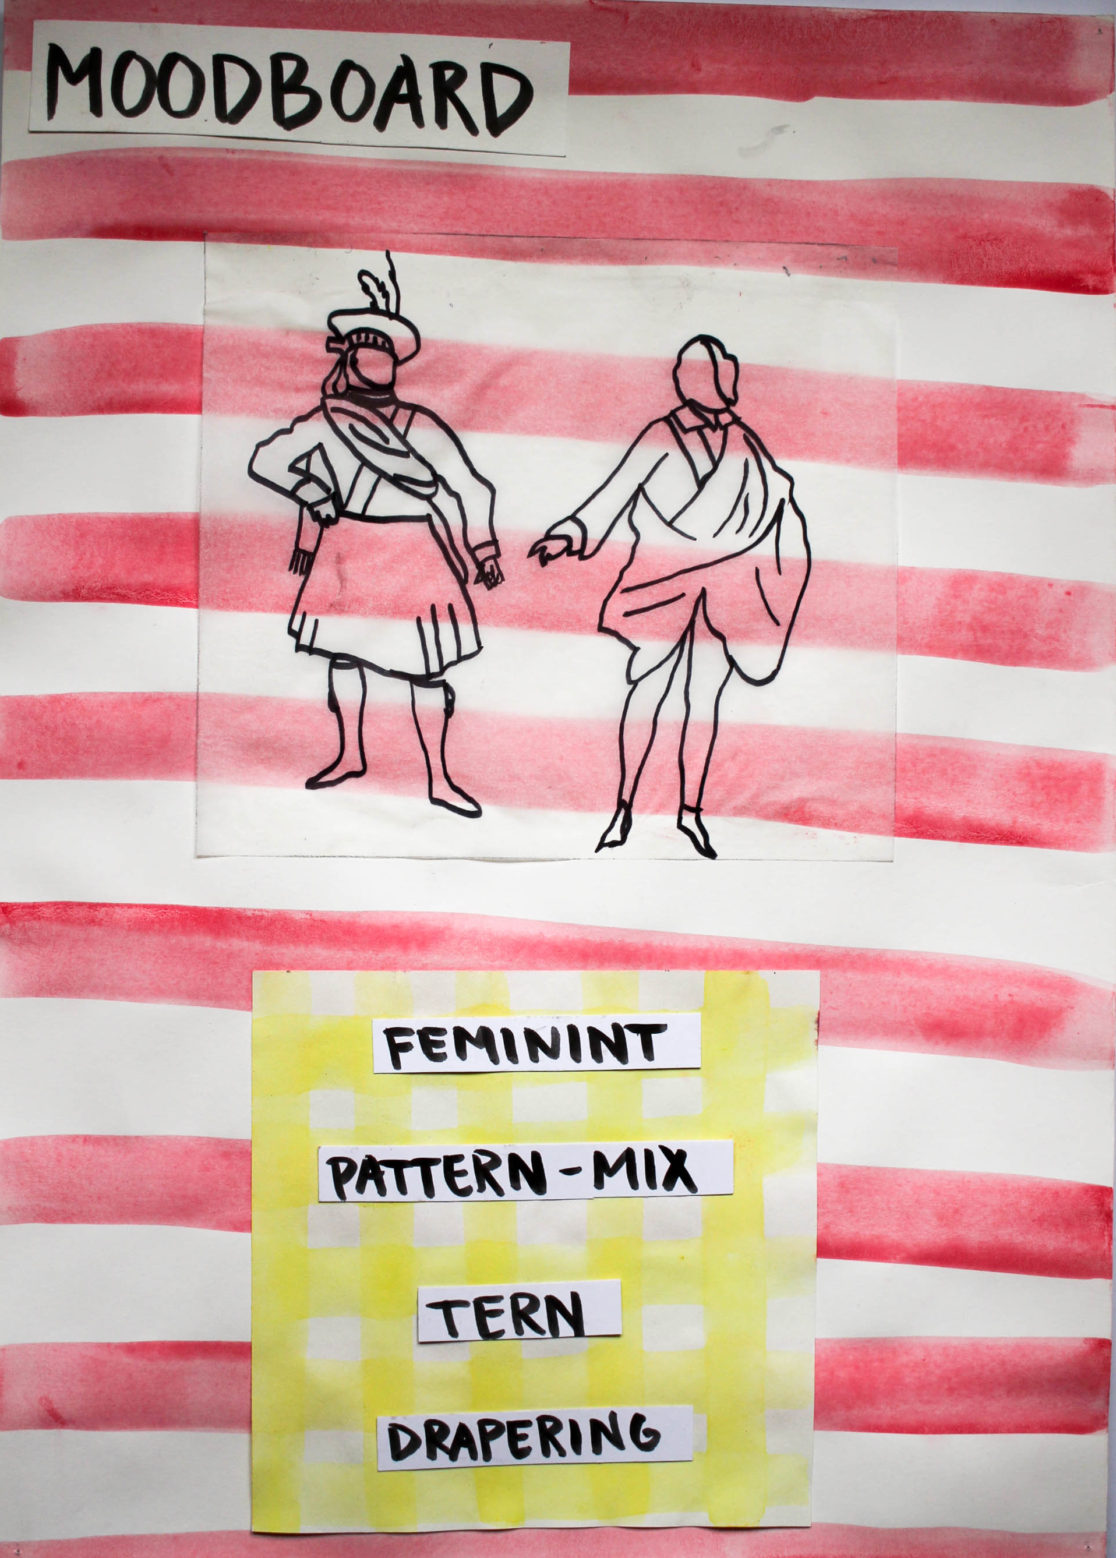 MOODBOARD
FEMININT
PATTERN-MIX
TERN
DRAPERING